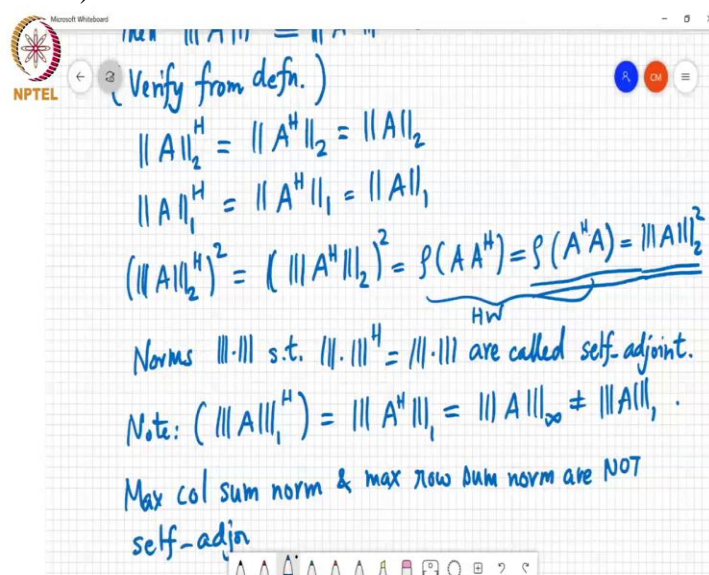 Microsoft Whiteboard
NPTEL
CM
(Verify from defn.)
‖A‖₂ᴴ = ‖Aᴴ‖₂ = ‖A‖₂
‖A‖₁ᴴ = ‖Aᴴ‖₁ = ‖A‖₁
(|||A|||₂ᴴ)² = (|||Aᴴ|||₂)² = ρ(AAᴴ) = ρ(AᴴA) = |||A|||₂²
HW
Norms |||·||| s.t. |||·|||ᴴ = |||·||| are called self-adjoint.
Note: (|||A|||₁ᴴ) = |||Aᴴ|||₁ = |||A|||∞ ≠ |||A|||₁ .
Max col sum norm & max row sum norm are NOT
self-adjo